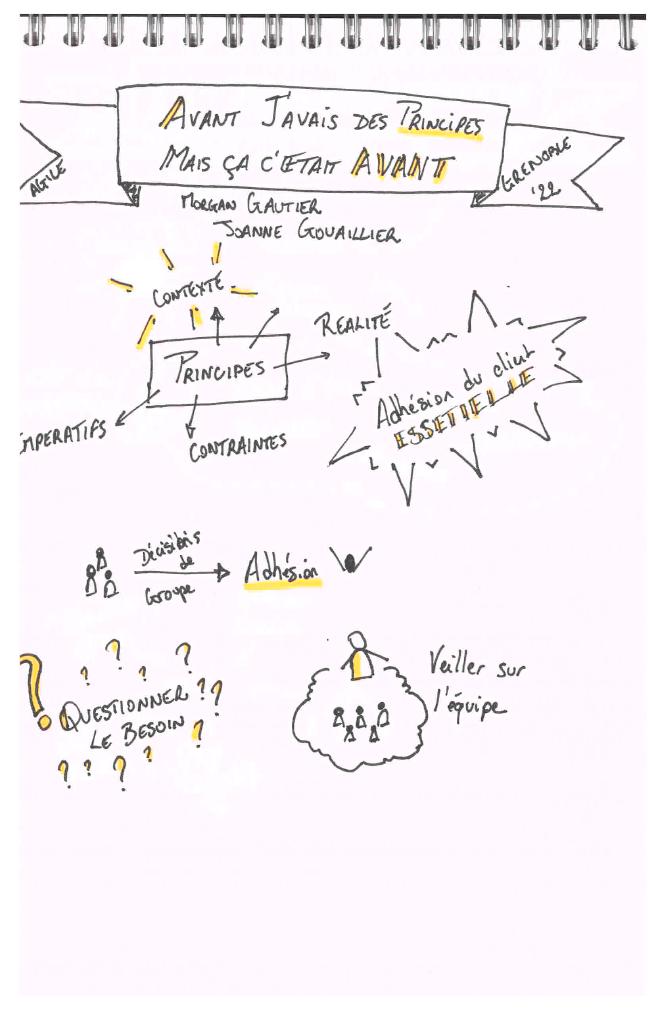 AVANT J'AVAIS DES PRINCIPES
MAIS ÇA C'ÉTAIT AVANT
AGILE
GRENOBLE
'22
MORGAN GAUTIER
JOANNE GOUAILLIER
CONTEXTE
PRINCIPES
RÉALITÉ
IMPERATIFS
CONTRAINTES
Adhésion du client
ESSETIELLE
Décisions
de
Groupe
Adhésion
QUESTIONNER
LE BESOIN
? ? ? ? ? ? ? ? ? ? ?
Veiller sur
l'équipe